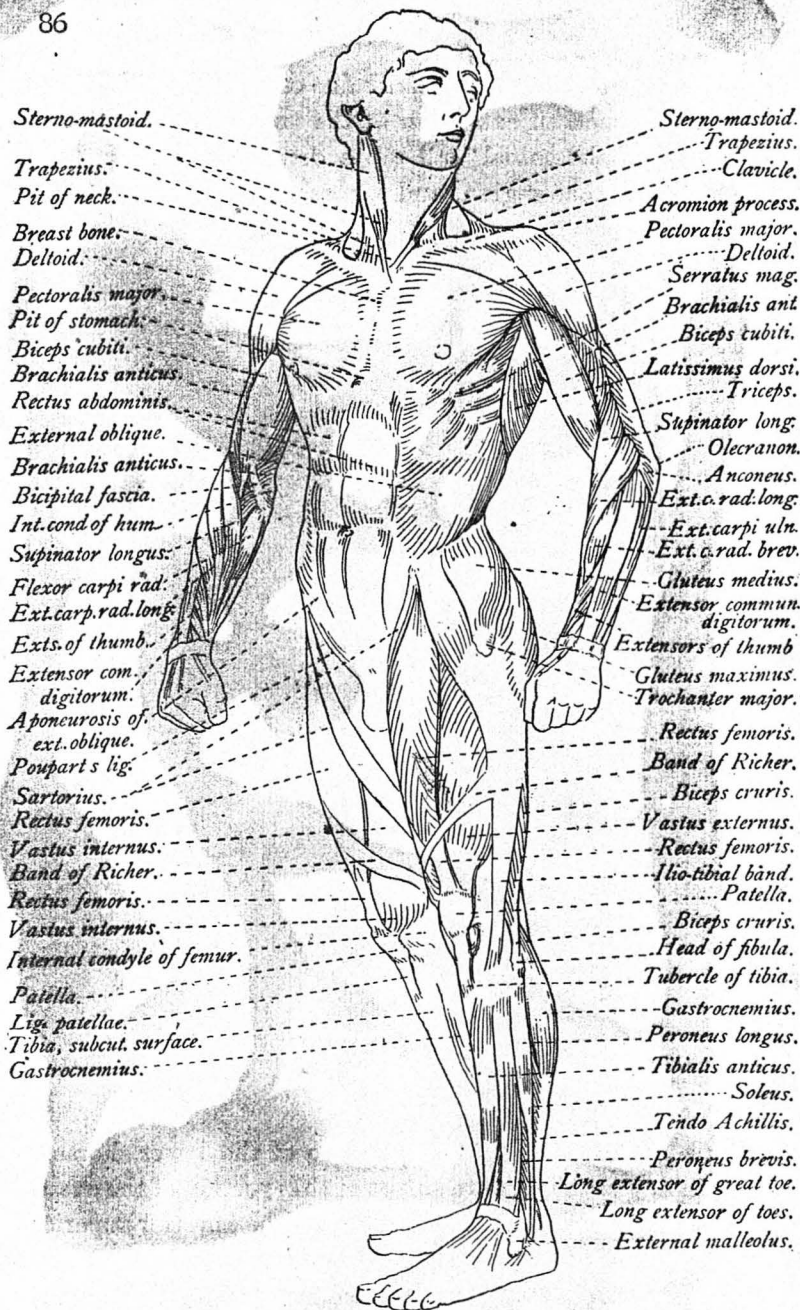 86
Sterno-mastoid.
Trapezius.
Pit of neck.
Breast bone.
Deltoid.
Pectoralis major.
Pit of stomach.
Biceps cubiti.
Brachialis anticus.
Rectus abdominis.
External oblique.
Brachialis anticus.
Bicipital fascia.
Int. cond of hum.
Supinator longus.
Flexor carpi rad.
Ext. carp. rad. long.
Exts. of thumb.
Extensor com.
digitorum.
Aponeurosis of
ext. oblique.
Poupart s lig.
Sartorius.
Rectus femoris.
Vastus internus.
Band of Richer.
Rectus femoris.
Vastus internus.
Internal condyle of femur.
Patella.
Lig. patellae.
Tibia, subcut. surface.
Gastrocnemius.
Sterno-mastoid.
Trapezius.
Clavicle.
Acromion process.
Pectoralis major.
Deltoid.
Serratus mag.
Brachialis ant.
Biceps cubiti.
Latissimus dorsi.
Triceps.
Supinator long.
Olecranon.
Anconeus.
Ext. c. rad. long.
Ext. carpi uln.
Ext. c. rad. brev.
Gluteus medius.
Extensor commun.
digitorum.
Extensors of thumb
Gluteus maximus.
Trochanter major.
Rectus femoris.
Band of Richer.
Biceps cruris.
Vastus externus.
Rectus femoris.
Ilio-tibial band.
Patella.
Biceps cruris.
Head of fibula.
Tubercle of tibia.
Gastrocnemius.
Peroneus longus.
Tibialis anticus.
Soleus.
Tendo Achillis.
Peroneus brevis.
Long extensor of great toe.
Long extensor of toes.
External malleolus.